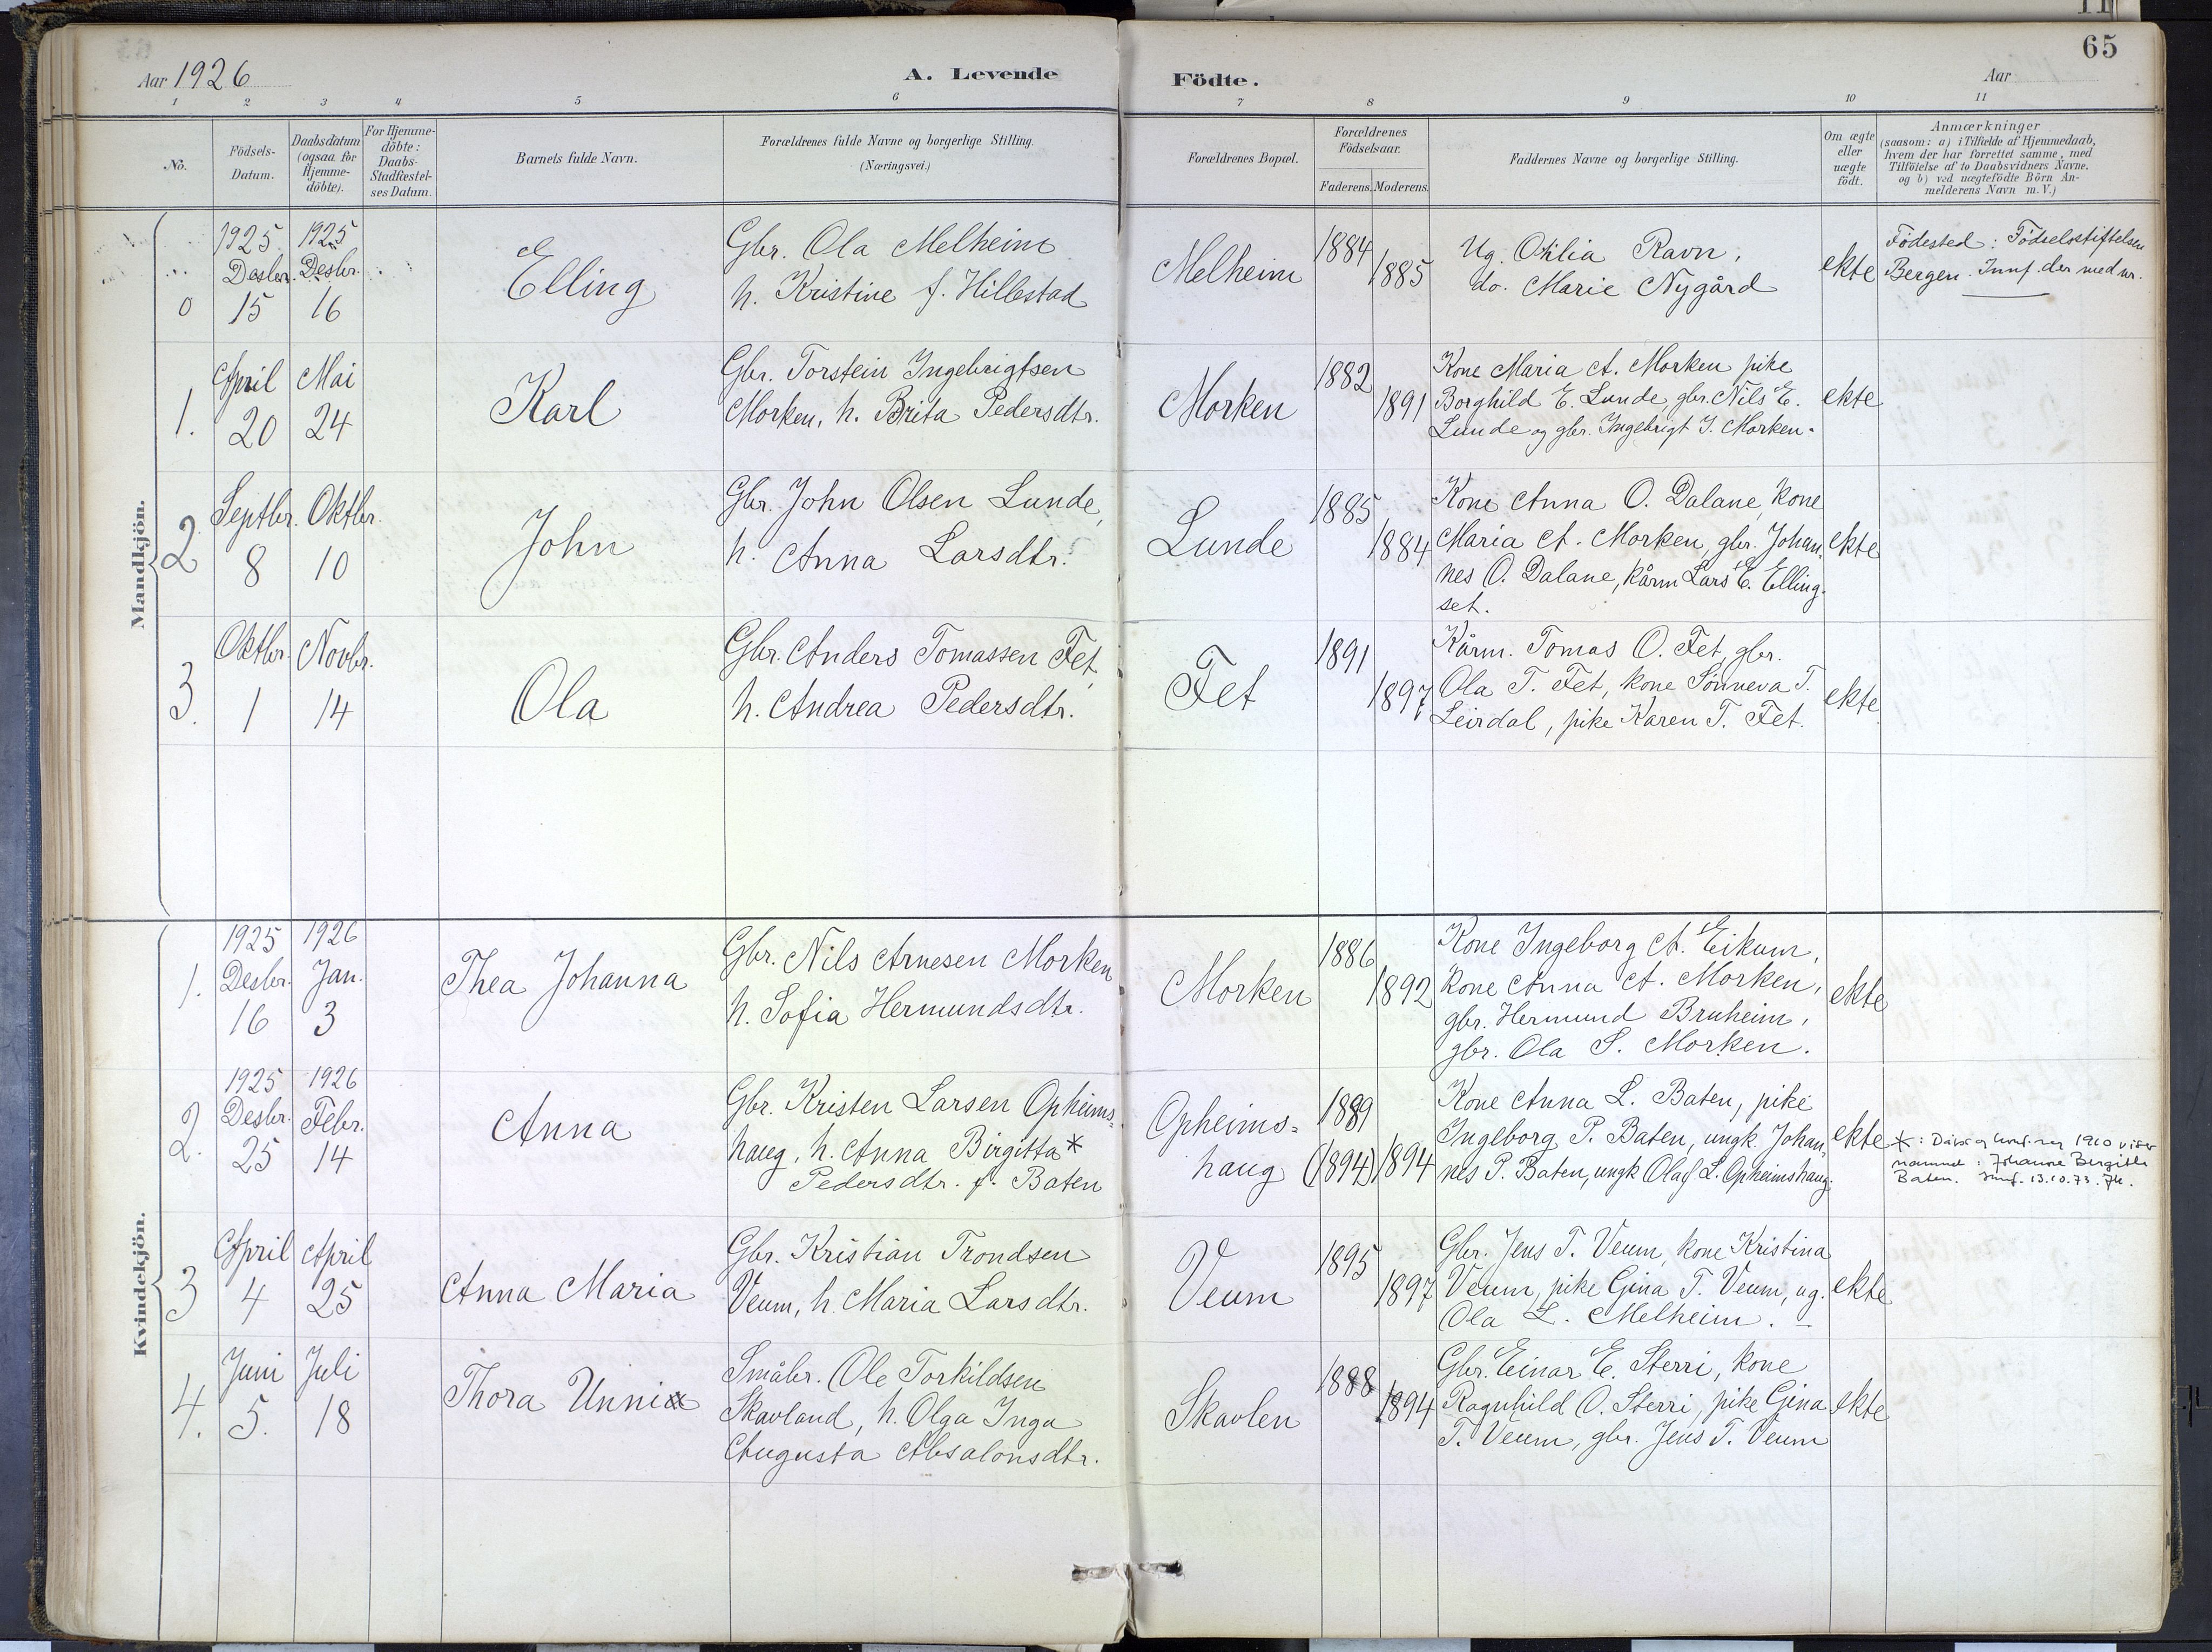 65
Aar 1926
A. Levende
Födte.
Aar
1 2 3 4 5 6 7 8 9 10 11
No.
Födsels-
Datum.
Daabsdatum
(ogsaa for
Hjemme-
döbte).
For Hjemme-
döbte:
Daabs-
Stadfæstel-
ses Datum.
Barnets fulde Navn.
Forældrenes fulde Navne og borgerlige Stilling.
(Næringsvei.)
Forældrenes Bopæl.
Forældrenes
Födselsaar.
Faderens. Moderens.
Faddernes Navne og borgerlige Stilling.
Om ægte
eller
uægte
födt.
Anmærkninger
(saasom: a) i Tilfælde af Hjemmedaab,
hvem der har forrettet samme, med
Tilföielse af to Daabsvidners Navne.
og b) ved uægtefödte Börn An-
melderens Navn m. V.)
Mandkjön.
0
1925
Desbr.
15
1925
Desbr.
16
Elling
Gbr. Ola Melheim
h. Kristine f. Hillestad
Melheim
1884
1885
Ug. Otilia Ravn,
do. Marie Nygård
ekte
Födested: Födselsstiftelsen
Bergen. Innf. der med nr.
1.
April
20
Mai
24
Karl
Gbr. Torstein Ingebrigtsen
Morken, h. Brita Pedersdtr.
Morken
1882
1891
Kone Maria A. Morken pike
Borghild E. Lunde, gbr. Nils E.
Lunde og gbr. Ingebrigt I. Morken.
ekte
2
Septbr.
8
Oktbr.
10
John
Gbr. John Olsen Lunde,
h. Anna Larsdtr.
Lunde
1885
1884
Kone Anna O. Dalane, kone
Maria A. Morken, gbr. Johan-
nes O. Dalane, kårm Lars E. Elling-
set.
ekte
3.
Oktbr.
1
Novbr.
14
Ola
Gbr. Anders Tomassen Fet,
h. Andrea Pedersdtr.
Fet
1891
1897
Kårm. Tomas O. Fet, gbr.
Ola T. Fet, kone Sönneva T.
Leirdal, pike Karen T. Fet.
ekte
Kvindekjön.
1.
1925
Desbr.
16
1926
Jan.
3
Thea Johanna
Gbr. Nils Arnesen Morken
h. Sofia Hermundsdtr.
Morken
1886
1892
Kone Ingeborg A. Eikum,
kone Anna A. Morken,
gbr. Hermund Bruheim,
gbr. Ola S. Morken.
ekte
2.
1925
Desbr.
25
1926
Febr.
14
Anna
Gbr. Kristen Larsen Opheims-
haug, h. Anna Birgitta *
Pedersdtr. f. Baten
Opheims-
haug
1889
(1894) 1894
Kone Anna L. Baten, pike
Ingeborg P. Baten, ungk. Johan-
nes P. Baten, ungk Olaf L. Opheimshaug.
ekte
*: Dåps og konf. reg 1910 viser
namnet: Johanne Bergitte
Baten. Innf. 13.10.73.
3
April
4
April
25
Anna Maria
Gbr. Kristian Trondsen
Veum, h. Maria Larsdtr.
Veum
1895
1897
Gbr. Jens T. Veum, kone Kristina
Veum, pike Gina T. Veum, ug.
Ola L. Melheim. -
ekte
4.
Juni
5.
Juli
18
Thora Unni
Småbr. Ole Torkildsen
Skavland, h. Olga Inga
Augusta Absalonsdtr.
Skavlen
1888
1894
Gbr. Einar E. Sterri, kone
Ragnhild O. Sterri, pike Gina
T. Veum, gbr. Jens T. Veum
ekte